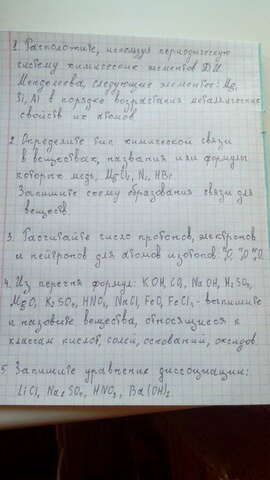 1. Расположите, используя периодическую
систему химических элементов Д.И.
Менделеева, следующие элементов: Mg,
Si, Al в порядке возрастания металлических
свойств их атомов
2. Определите тип химической связи
в веществах, названия или формулы
которых медь, MgCl₂, N₂, HBr
Запишите схему образования связи для
веществ
3. Расчитайте число протонов, электронов
и нейтронов для атомов изотопов:
4. Из перечня формул: KOH, CO₂, NaOH, H₂SO₄,
MgO, K₂SO₄, HNO₃, NaCl, FeO, FeCl₃ - выпишите
и назовите вещества, относящиеся к
классам кислот, солей, оснований, оксидов.
5 Запишите уравнение диссоциации:
LiCl, Na₂SO₄, HNO₃, Ba(OH)₂